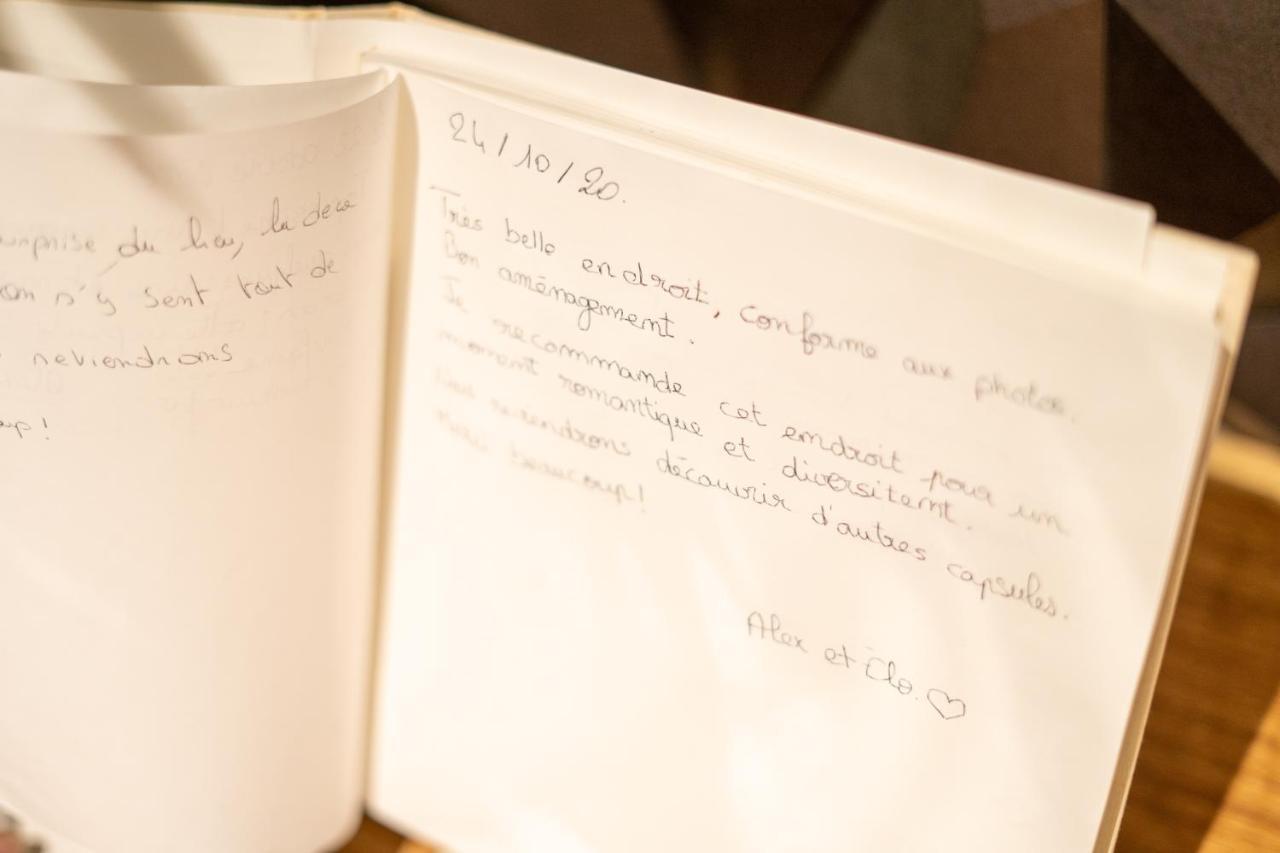 urprise du lieu, la déco
on n'y sent tout de
reviendrons
up!
24/10/20.
Très belle endroit, conforme aux photos.
Bon aménagement.
Je recommande cet endroit pour un
moment romantique et diversitent.
Nous reviendrons découvrir d'autres capsules.
Merci beaucoup!
Alex et Clo. ♡